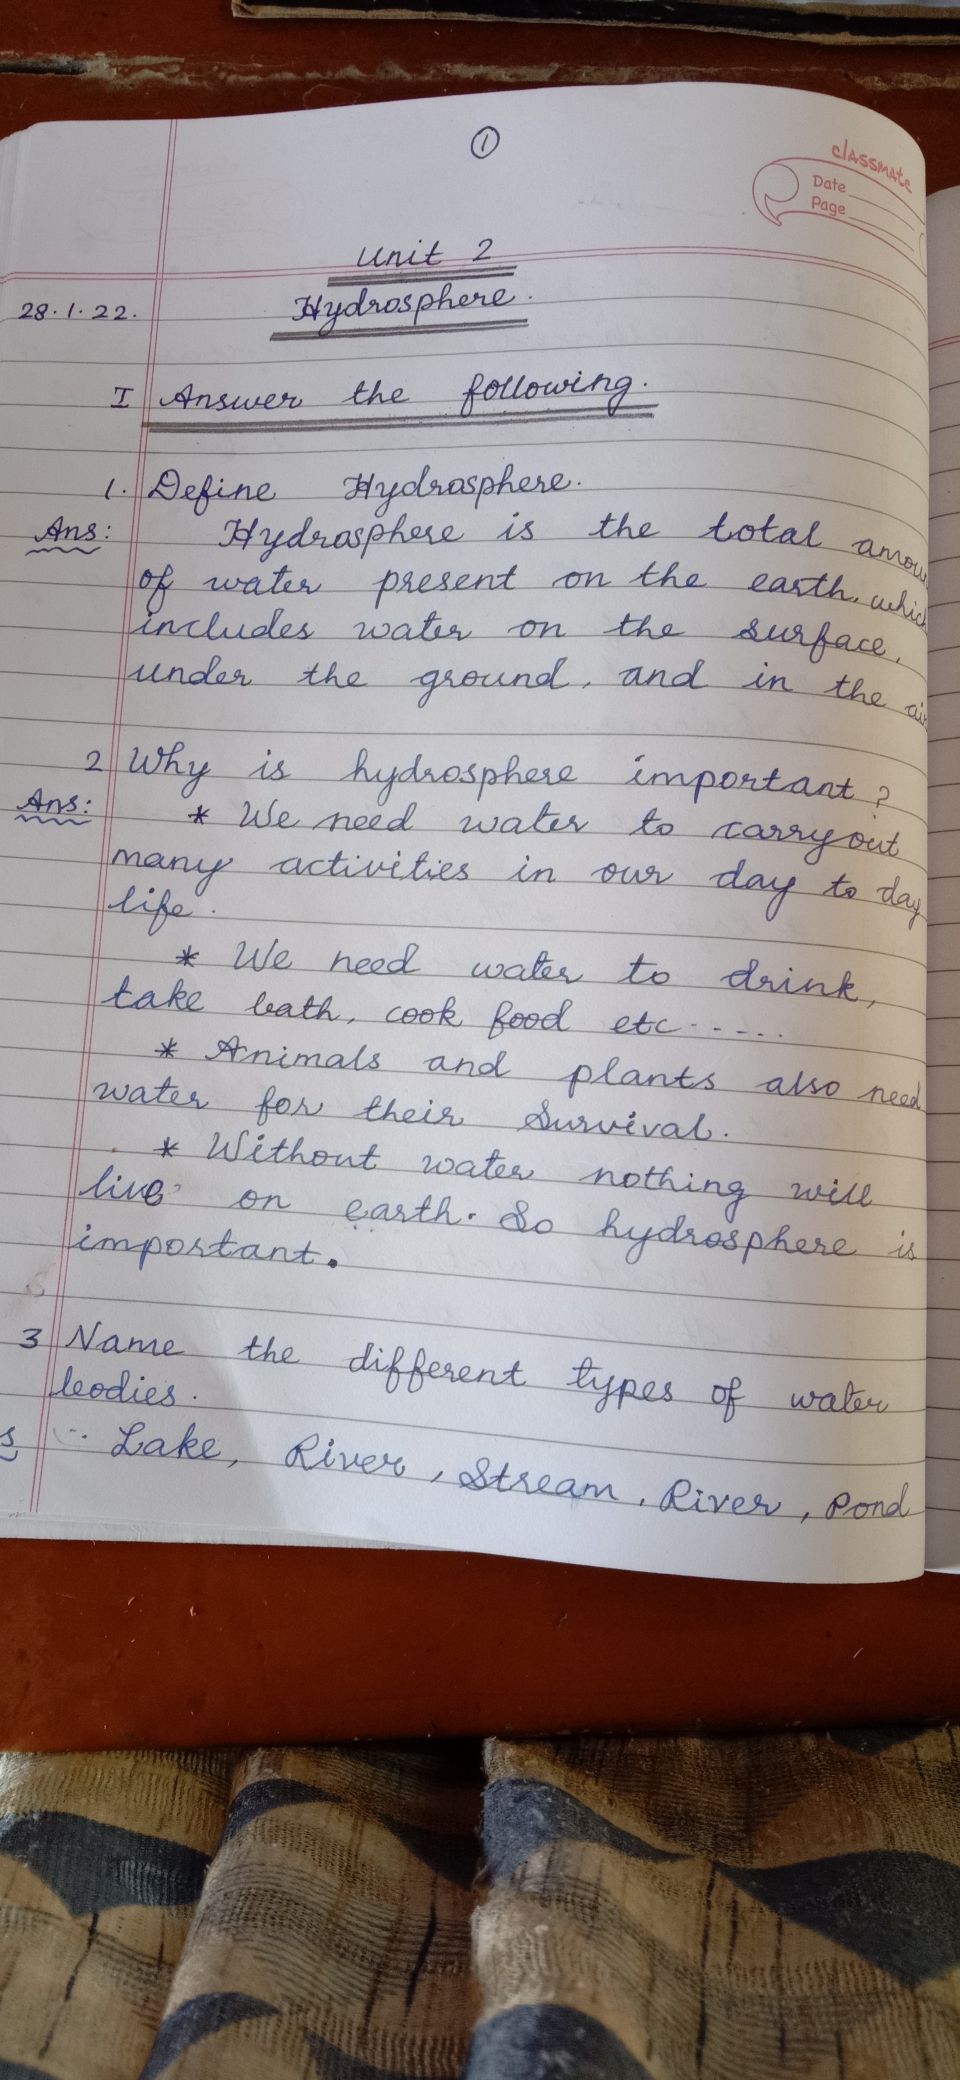 1
classmate
Date
Page
Unit 2
28.1.22.
Hydrosphere.
I Answer the following.
1. Define Hydrosphere.
Ans: Hydrosphere is the total amou
of water present on the earth, which
includes water on the surface,
under the ground, and in the air
2 Why is hydrosphere important?
Ans: * We need water to carryout
many activities in our day to day
life.
* We need water to drink,
take bath, cook food etc......
* Animals and plants also need
water for their survival.
* Without water nothing will
live on earth. So hydrosphere is
important.
3 Name the different types of water
bodies.
s Lake, River, Stream, River, Pond